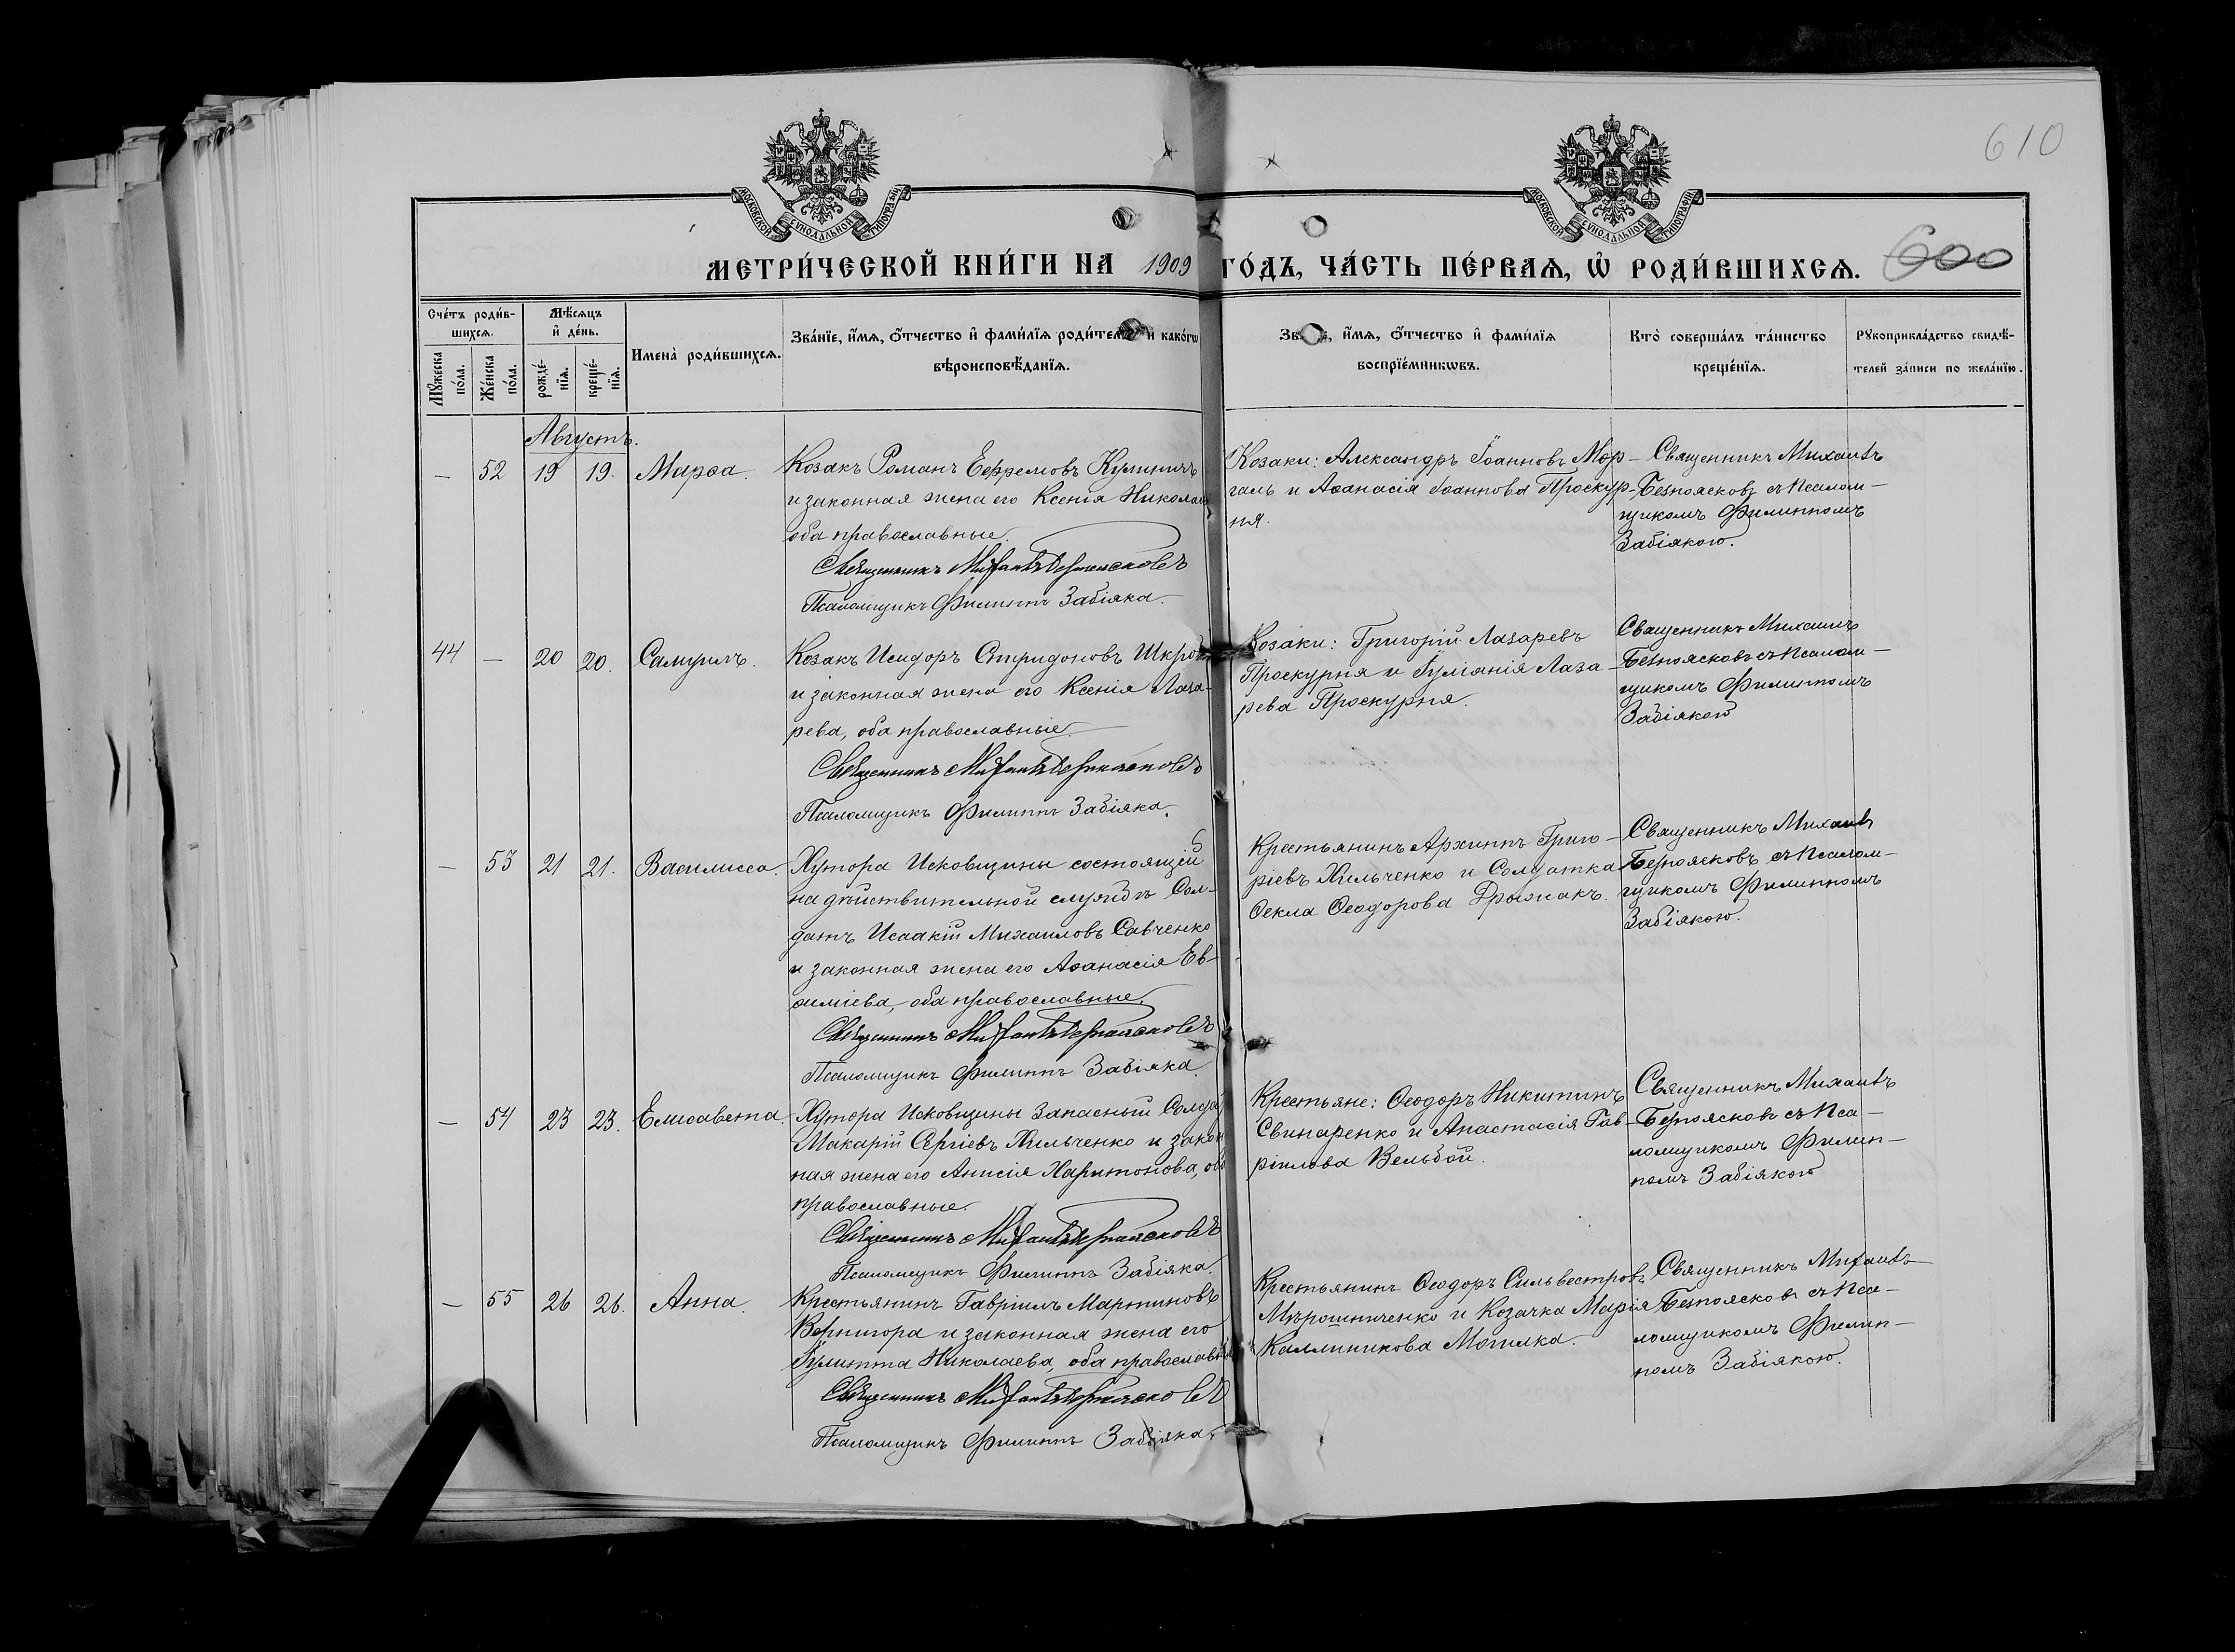 610
МОСКОВСКОЙ СѴНОДАЛЬНОЙ ТИПОГРАФІИ
МОСКОВСКОЙ СѴНОДАЛЬНОЙ ТИПОГРАФІИ
МЕТРИ́ЧЕСКОЙ КНИ́ГИ НА 1909 ГО́ДЪ, ЧА́СТЬ ПЕ́РВАѦ, Ѡ҆ РОДИ́ВШИХСѦ.
600
Сче́тъ роди́в-
шихсѧ.
Мꙋ́жеска по́ла.
Же́нска по́ла.
Мѣ́сѧцъ
и҆ де́нь.
рожде́-
нїѧ.
креще́-
нїѧ.
Имена̀ роди́вшихсѧ.
Зва́нїе, и҆́мѧ, ѻ҆́тчество и҆ фами́лїѧ роди́телей и҆ како́гѡ
вѣроисповѣ́данїѧ.
Зва́нїе, и҆́мѧ, ѻ҆́тчество и҆ фами́лїѧ
воспрїе́мникѡвъ.
Кто̀ соверша́лъ та́инство
креще́нїѧ.
Рꙋкоприкла́дство свидѣ́-
телей за́писи по жела́нїю.
Августъ.
— 52 19 19. Марѳа.
Козакъ Романъ Ефремовъ Кулиничъ
и законная жена его Ксенія Николае
оба православные.
Священникъ Михаилъ Безпоясковъ
Псаломщикъ Филиппъ Забіяка.
Козаки: Александръ Іоанновъ Мор-
галь и Аѳанасія Іоаннова Проскур-
ня.
Священникъ Михаилъ
Безпоясковъ съ Псалом-
щикомъ Филиппомъ
Забіякою.
44 — 20 20. Самуилъ.
Козакъ Исидоръ Спиридоновъ
и законная жена его Ксенія Лаза-
рева, оба православные.
Священникъ Михаилъ Безпоясковъ
Псаломщикъ Филиппъ Забіяка.
Козаки: Григорій Лазаревъ
Проскурня и Іуліанія Лаза-
рева Проскурня.
Священникъ Михаилъ
Безпоясковъ съ Псалом-
щикомъ Филиппомъ
Забіякою
— 53 21 21. Василисса.
Хутора Исковщины состоящій
на дѣйствительной службѣ Сол-
датъ Исаакій Михаиловъ Савченко
и законная жена его Аѳанасія Ев-
ѳиміева, оба православные.
Священникъ Михаилъ Безпоясковъ
Псаломщикъ Филиппъ Забіяка.
Крестьянинъ Архиппъ Григо-
ріевъ Хильченко и Солдатка
Ѳекла Ѳеодорова Дрыжакъ.
Священникъ Михаилъ
Безпоясковъ съ Псалом-
щикомъ Филиппомъ
Забіякою.
— 54 23 23. Елисавета.
Хутора Исковщины Запасный Солда
Макарій Сергіевъ Хильченко и закон
ная жена его Анисія Харитонова, об
православные.
Священникъ Михаилъ Безпоясковъ
Псаломщикъ Филиппъ Забіяка.
Крестьяне: Ѳеодоръ Никитинъ
Свинаренко и Анастасія Гав-
ріилова Вельбой.
Священникъ Михаилъ
Безпоясковъ съ Пса-
ломщикомъ Филип-
помъ Забіякою
— 55 26 26. Анна.
Крестьянинъ Гавріилъ Мартиновъ
Вернигора и законная жена его
Іулитта Николаева, оба православны
Священникъ Михаилъ Безпоясковъ
Псаломщикъ Филиппъ Забіяка.
Крестьянинъ Ѳеодоръ Сильвестровъ
Мѣрошниченко и Козачка Марія
Каллиникова Могилка.
Священникъ Михаилъ
Безпоясковъ съ Пса-
ломщикомъ Филип-
помъ Забіякою.